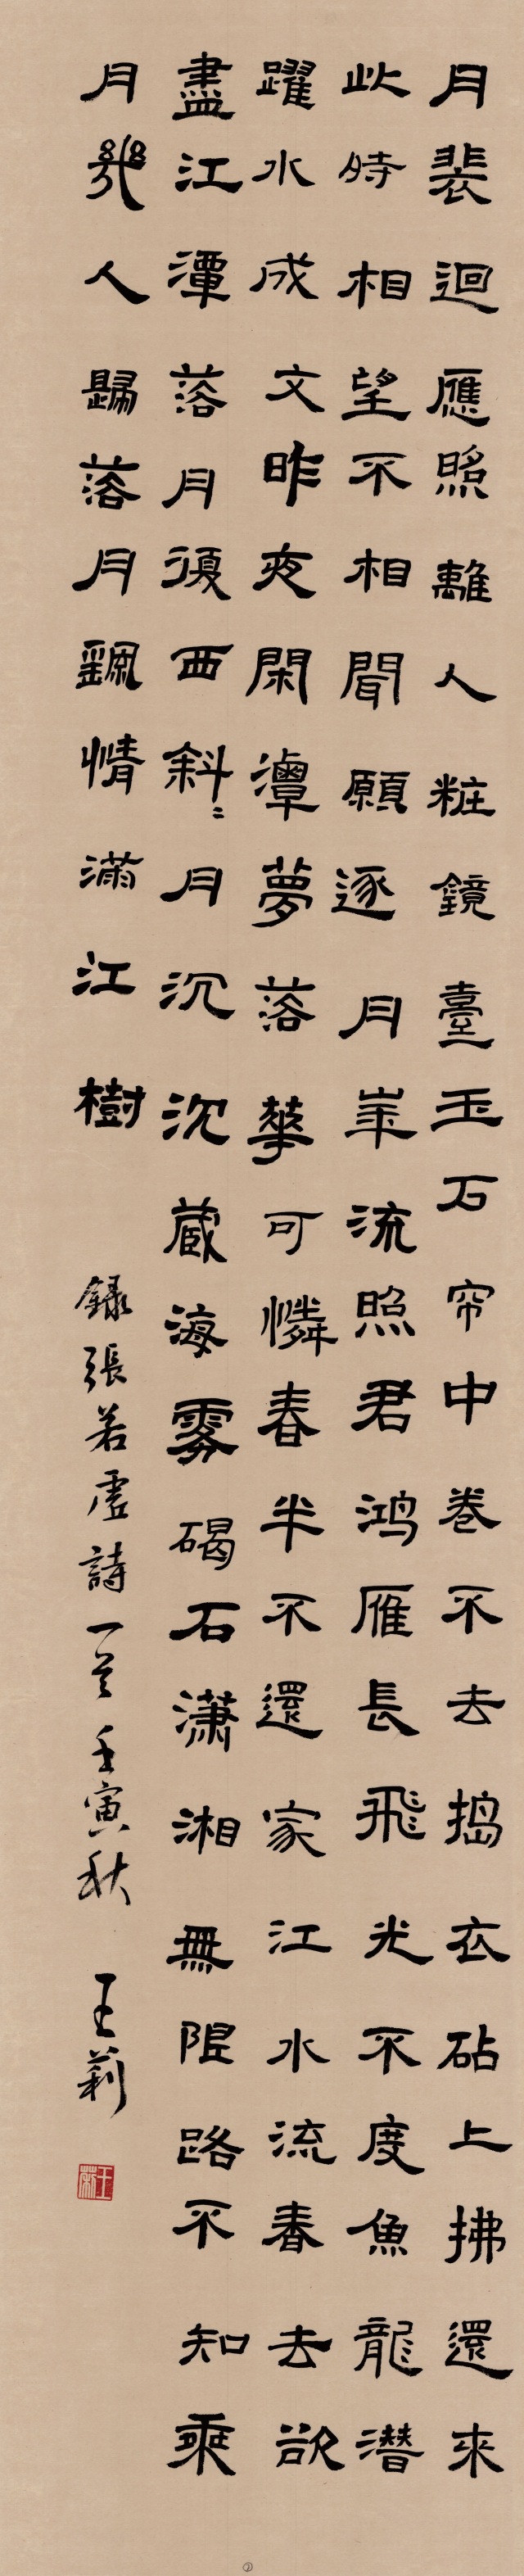 月裴迴應照離人粧鏡臺玉石帘中卷不去搗衣砧上拂還來
此時相望不相聞願逐月崋流照君鸿雁長飛光不度魚龍潜
躍水成文昨夜閑潭夢落華可憐春半不還家江水流春去欲
盡江潭落月復西斜〻月沉沉蔵海雾碣石潇湘無限路不知乘
月幾人歸落月飖情滿江樹
錄張若虛詩一首壬寅秋
王莉
王莉